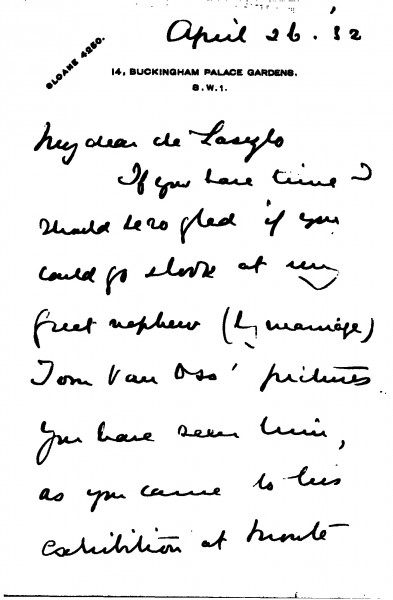 April 26. '32
SLOANE 4250.
14, BUCKINGHAM PALACE GARDENS.
S.W.1.
My dear de Laszlo
If you have time I
should be so glad if you
could go & look at my
great nephew (by marriage)
Tom Van Oss' pictures
You have seen him,
as you came to his
exhibition at Mount